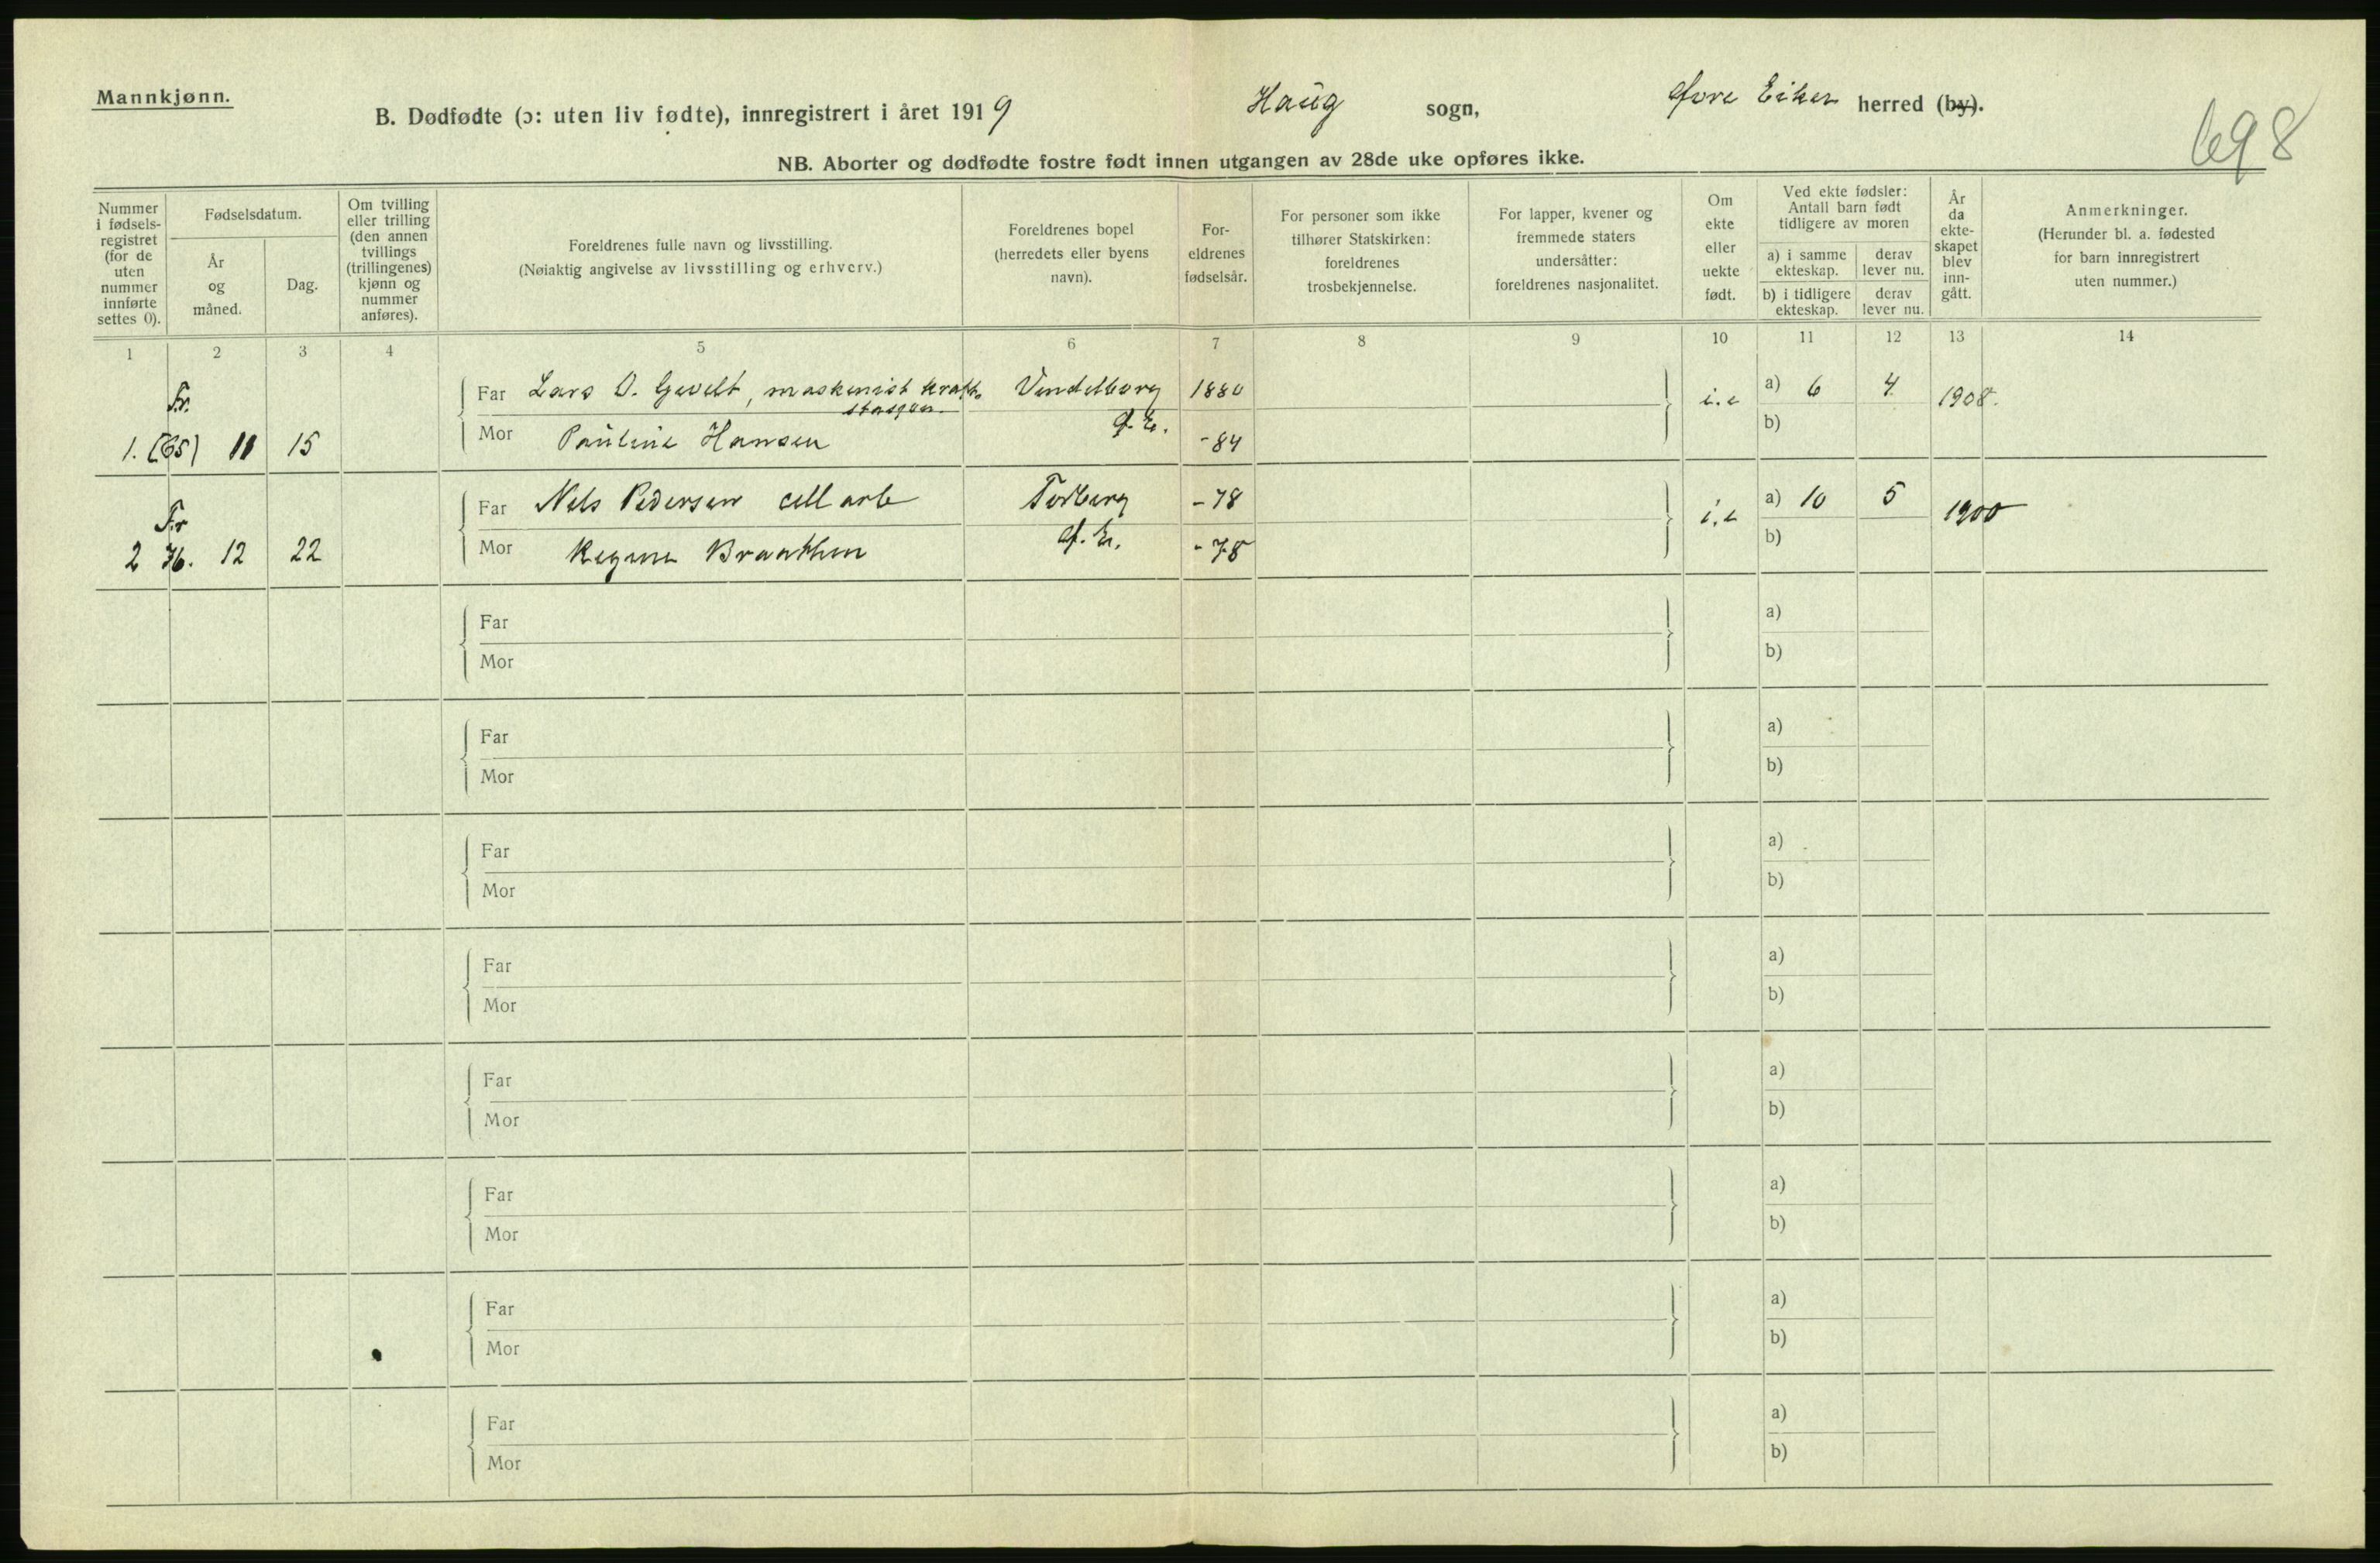 Mannkjønn.
B. Dødfødte (ɔ: uten liv fødte), innregistrert i året 1919 Haug sogn, Øvre Eiker herred (by).
698
NB. Aborter og dødfødte fostre født innen utgangen av 28de uke opføres ikke.
Nummer
i fødsels-
registret
(for de
uten
nummer
innførte
settes 0).
Fødselsdatum.
År
og
måned.
Dag.
Om tvilling
eller trilling
(den annen
tvillings
(trillingenes)
kjønn og
nummer
anføres).
Foreldrenes fulle navn og livsstilling.
(Nøiaktig angivelse av livsstilling og erhverv.)
Foreldrenes bopel
(herredets eller byens
navn).
For-
eldrenes
fødselsår.
For personer som ikke
tilhører Statskirken:
foreldrenes
trosbekjennelse.
For lapper, kvener og
fremmede staters
undersåtter:
foreldrenes nasjonalitet.
Om
ekte
eller
uekte
født.
Ved ekte fødsler:
Antall barn født
tidligere av moren
a) i samme
ekteskap.
derav
lever nu.
b) i tidligere
ekteskap.
derav
lever nu.
År
da
ekte-
skapet
blev
inn-
gått.
Anmerkninger.
(Herunder bl. a. fødested
for barn innregistrert
uten nummer.)
1 2 3 4 5 6 7 8 9 10 11 12 13 14
Fr.
1. (65) 11 15
Far Lars O. maskinist kraft
stasjon
1880
Mor Pauline Hansen
Ø. E.
-84
i. e
a) 6 4 1908.
b)
Fr
2 76. 12 22
Far Nils Pedersen cell arb
-78
Mor Regine Braathen
Ø. E.
-78
i. e
a) 10 5 1900
b)
Far
Mor
a)
b)
Far
Mor
a)
b)
Far
Mor
a)
b)
Far
Mor
a)
b)
Far
Mor
a)
b)
Far
Mor
a)
b)
Far
Mor
a)
b)
Far
Mor
a)
b)